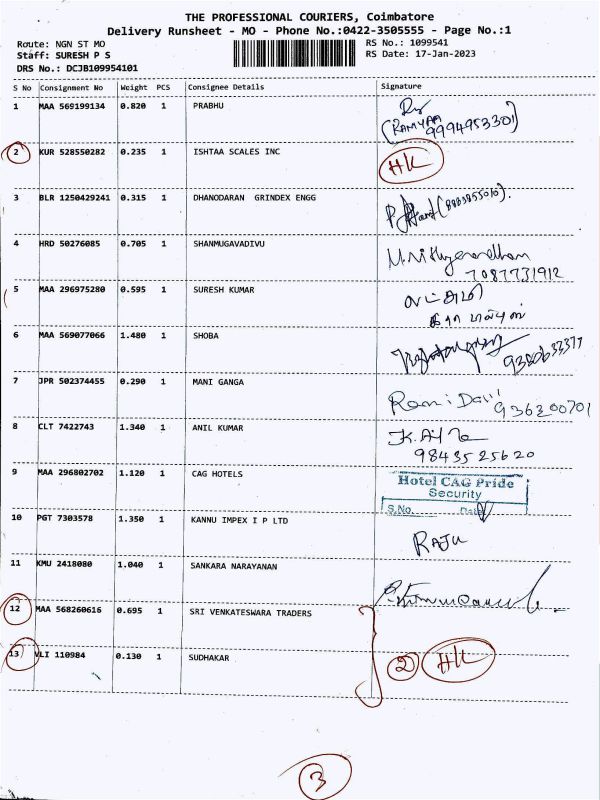 THE PROFESSIONAL COURIERS, Coimbatore
Delivery Runsheet - MO - Phone No.:0422-3505555 - Page No.:1
Route: NGN ST MO
RS No.: 1099541
Staff: SURESH P S
RS Date: 17-Jan-2023
DRS No.: DCJB109954101
S No Consignment No Weight PCS Consignee Details Signature
1 MAA 569199134 0.820 1 PRABHU
(RAMYAA
9994953301)
2 KUR 528550282 0.235 1 ISHTAA SCALES INC HK
3 BLR 1250429241 0.315 1 DHANODARAN GRINDEX ENGG
4 HRD 50276085 0.705 1 SHANMUGAVADIVU
7087731912
5 MAA 296975280 0.595 1 SURESH KUMAR
6 MAA 569077066 1.480 1 SHOBA
7 JPR 502374455 0.290 1 MANI GANGA Rani Devi
936200701
8 CLT 7422743 1.340 1 ANIL KUMAR
9843525620
9 MAA 296802702 1.120 1 CAG HOTELS
Hotel CAG Pride
Security
S.No. Date
10 PGT 7303578 1.350 1 KANNU IMPEX I P LTD RAJU
11 KMU 2418080 1.040 1 SANKARA NARAYANAN
12 MAA 568260616 0.695 1 SRI VENKATESWARA TRADERS
13 VLI 110984 0.130 1 SUDHAKAR 2 HK
3